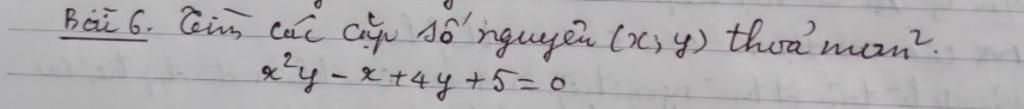 Bài 6. Tìm các cặp số nguyên (x; y) thoả mãn:
x²y - x + 4y + 5 = 0